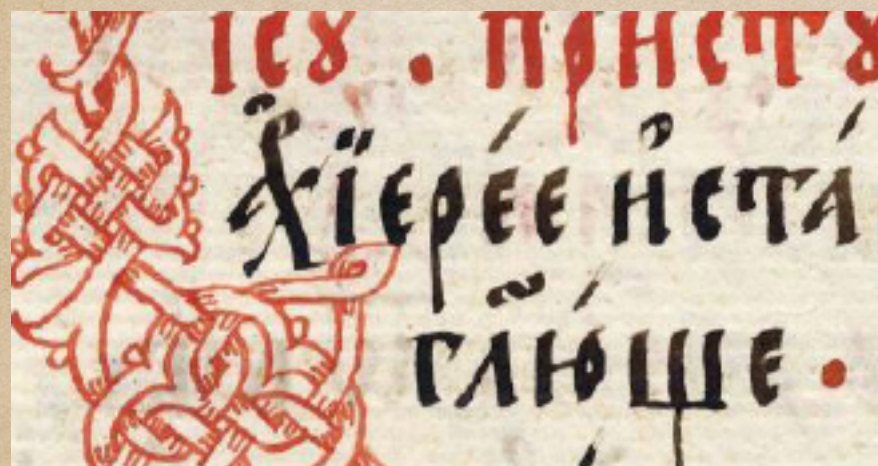 ісꙋ . пристꙋ
а҆рхїере́е и҆ ста́
гл҃ю́ще .